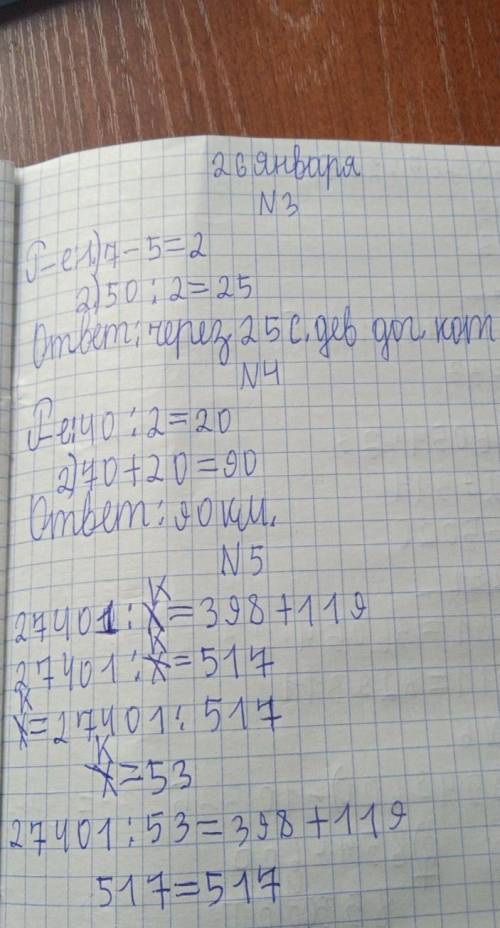 26 января
N 3
Р-е: 1) 7 - 5 = 2
2) 50 : 2 = 25
Ответ: через 25 с. дев дог. кот
N4
Р-е: 40 : 2 = 20
2) 70 + 20 = 90
Ответ: 90 км.
N 5
27401 : к = 398 + 119
27401 : к = 517
к = 27401 : 517
к = 53
27401 : 53 = 398 + 119
517 = 517